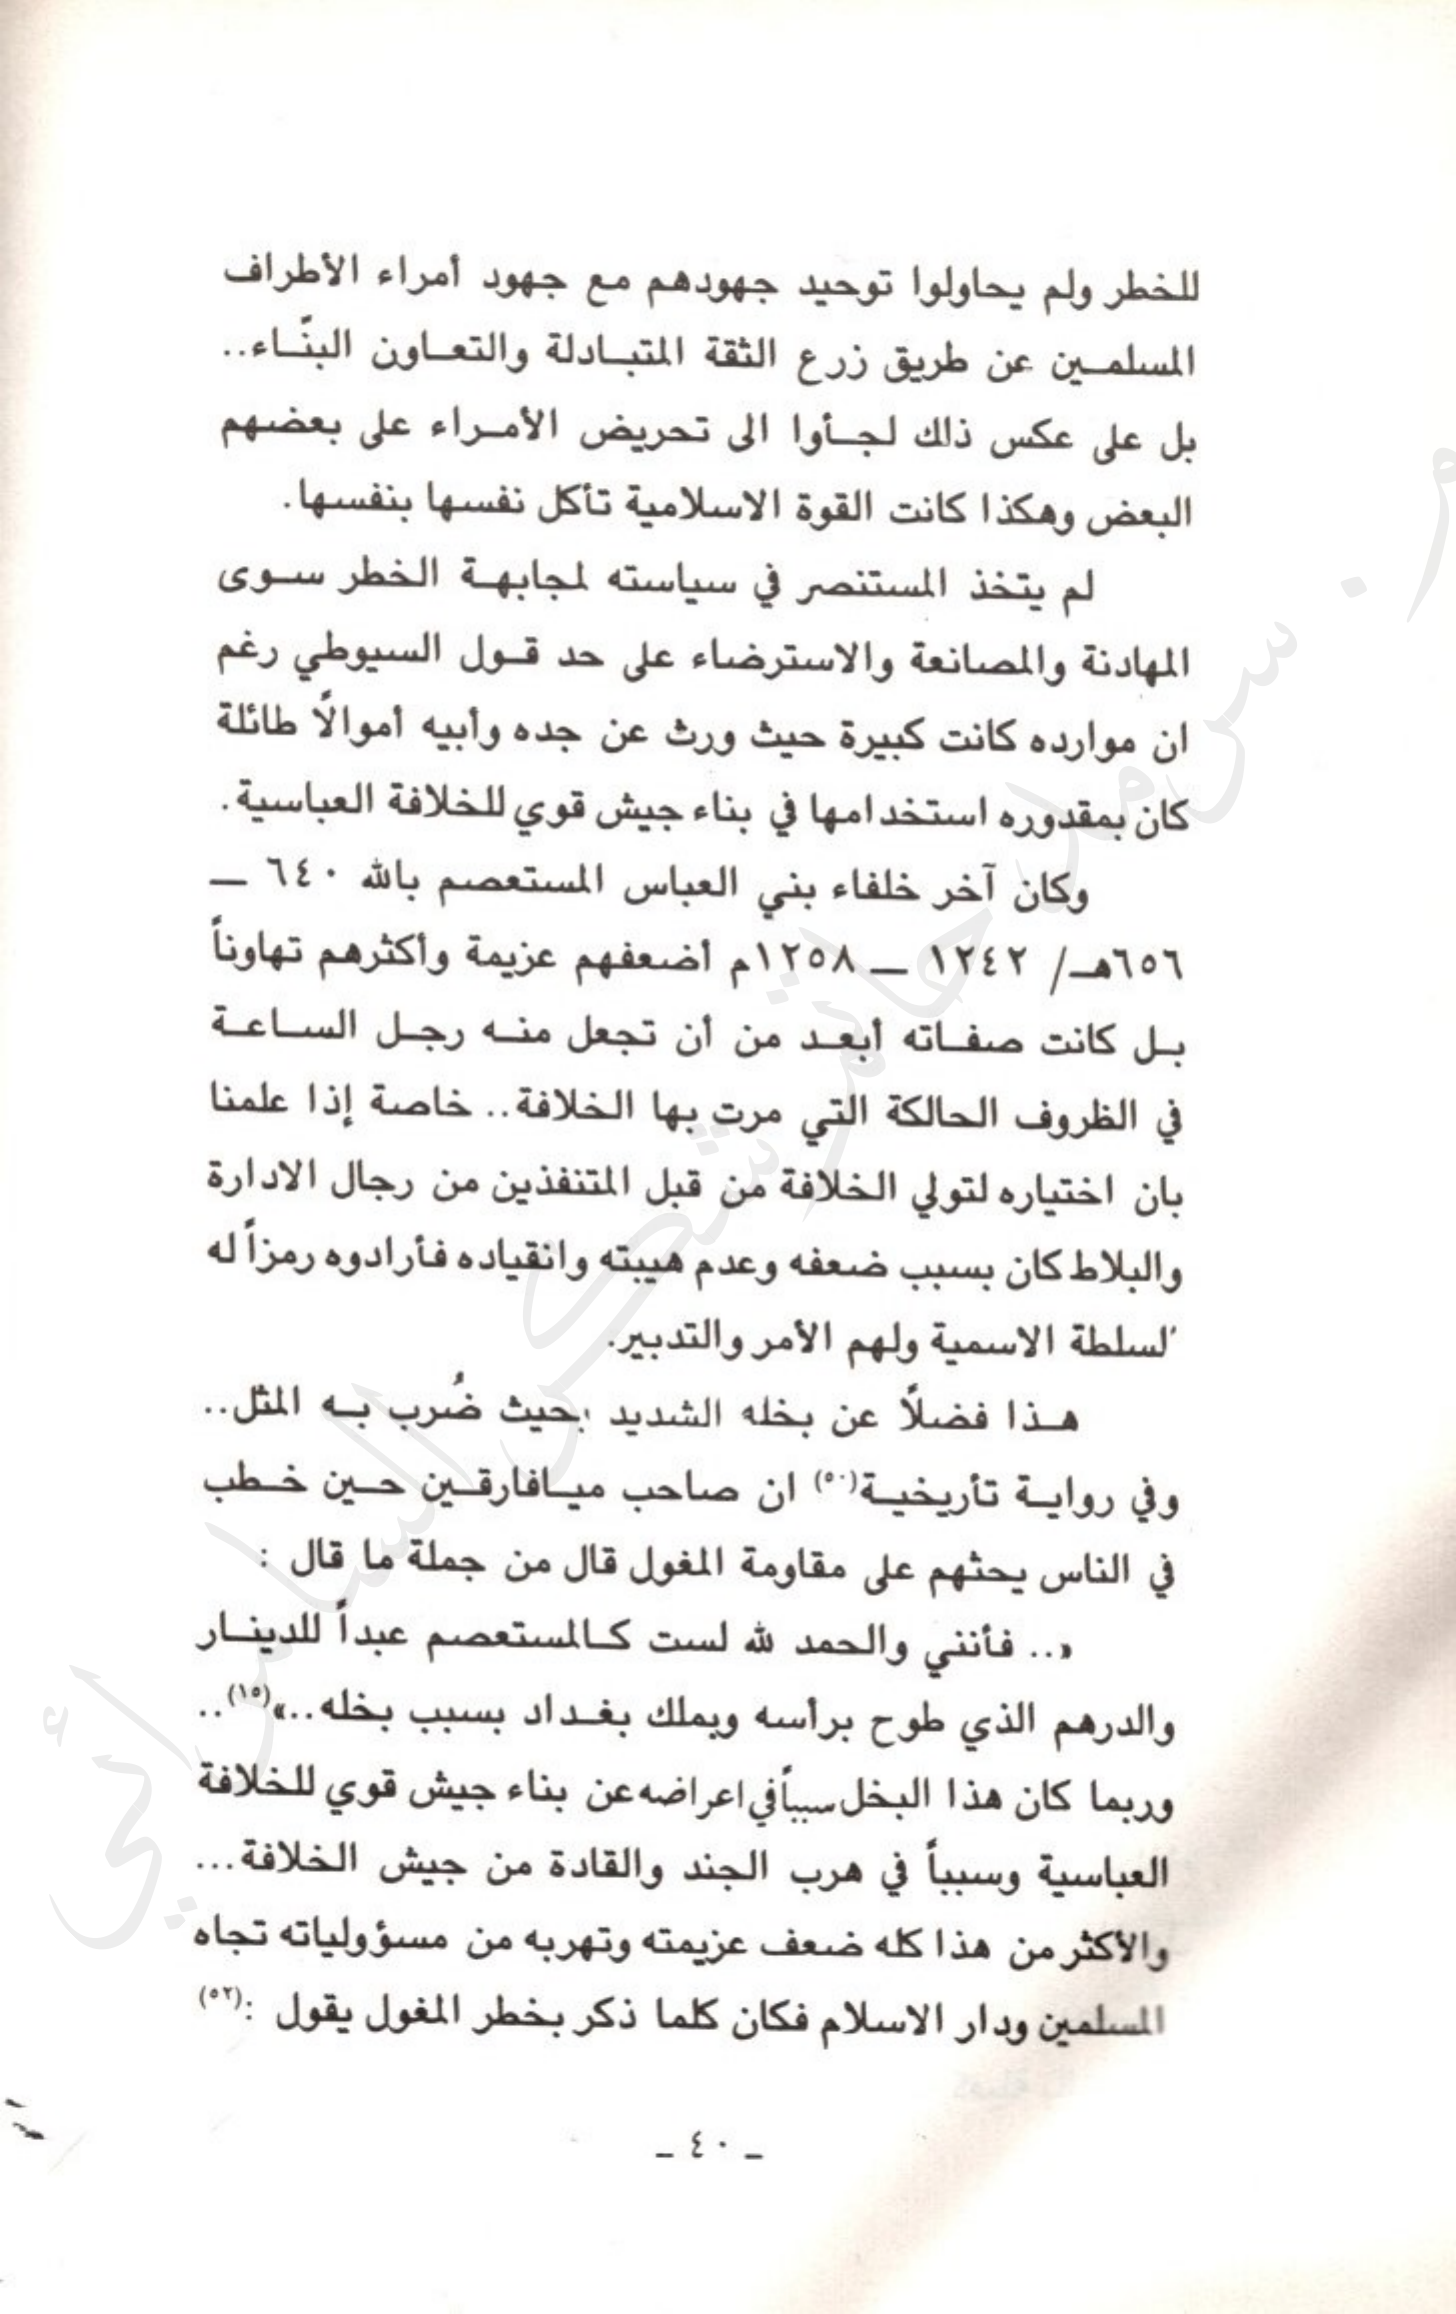 للخطر ولم يحاولوا توحيد جهودهم مع جهود أمراء الأطراف
المسلمين عن طريق زرع الثقة المتبادلة والتعاون البنّاء..
بل على عكس ذلك لجأوا الى تحريض الأمراء على بعضهم
البعض وهكذا كانت القوة الاسلامية تأكل نفسها بنفسها.
لم يتخذ المستنصر في سياسته لمجابهة الخطر سوى
المهادنة والمصانعة والاسترضاء على حد قول السيوطي رغم
ان موارده كانت كبيرة حيث ورث عن جده وأبيه أموالًا طائلة
كان بمقدوره استخدامها في بناء جيش قوي للخلافة العباسية.
وكان آخر خلفاء بني العباس المستعصم بالله ٦٤٠ —
٦٥٦هـ/ ١٢٤٢ — ١٢٥٨م أضعفهم عزيمة وأكثرهم تهاوناً
بل كانت صفاته أبعد من أن تجعل منه رجل الساعة
في الظروف الحالكة التي مرت بها الخلافة.. خاصة إذا علمنا
بان اختياره لتولي الخلافة من قبل المتنفذين من رجال الادارة
والبلاط كان بسبب ضعفه وعدم هيبته وانقياده فأرادوه رمزاً له
السلطة الاسمية ولهم الأمر والتدبير.
هذا فضلًا عن بخله الشديد بحيث ضُرب به المثل..
وفي رواية تأريخية(٥٠) ان صاحب ميافارقين حين خطب
في الناس يحثهم على مقاومة المغول قال من جملة ما قال :
«.. فأنني والحمد لله لست كالمستعصم عبداً للدينار
والدرهم الذي طوح برأسه وبملك بغداد بسبب بخله..»(١٥)..
وربما كان هذا البخل سبباً في اعراضه عن بناء جيش قوي للخلافة
العباسية وسبباً في هرب الجند والقادة من جيش الخلافة...
والأكثر من هذا كله ضعف عزيمته وتهربه من مسؤولياته تجاه
المسلمين ودار الاسلام فكان كلما ذكر بخطر المغول يقول :(٥٢)
ـ ٤٠ ـ